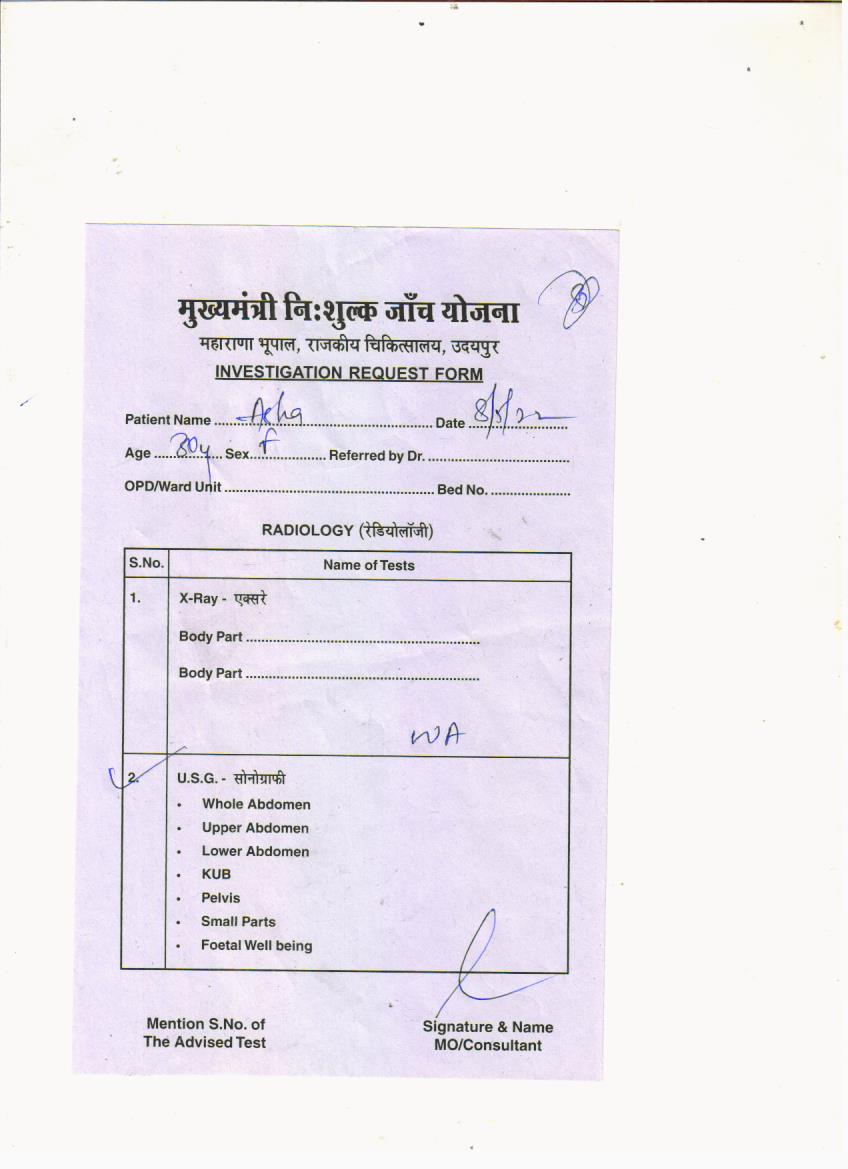 मुख्यमंत्री निःशुल्क जाँच योजना
महाराणा भूपाल, राजकीय चिकित्सालय, उदयपुर
INVESTIGATION REQUEST FORM
Patient Name ........ Asha ........ Date 8/5/22
Age ........ 30y ........ Sex ........ F ........ Referred by Dr. ........
OPD/Ward Unit ........ Bed No. ........
RADIOLOGY (रेडियोलॉजी)
S.No. Name of Tests
1. X-Ray - एक्सरे
Body Part ........
Body Part ........
WA
2. U.S.G. - सोनोग्राफी
• Whole Abdomen
• Upper Abdomen
• Lower Abdomen
• KUB
• Pelvis
• Small Parts
• Foetal Well being
Mention S.No. of Signature & Name
The Advised Test MO/Consultant